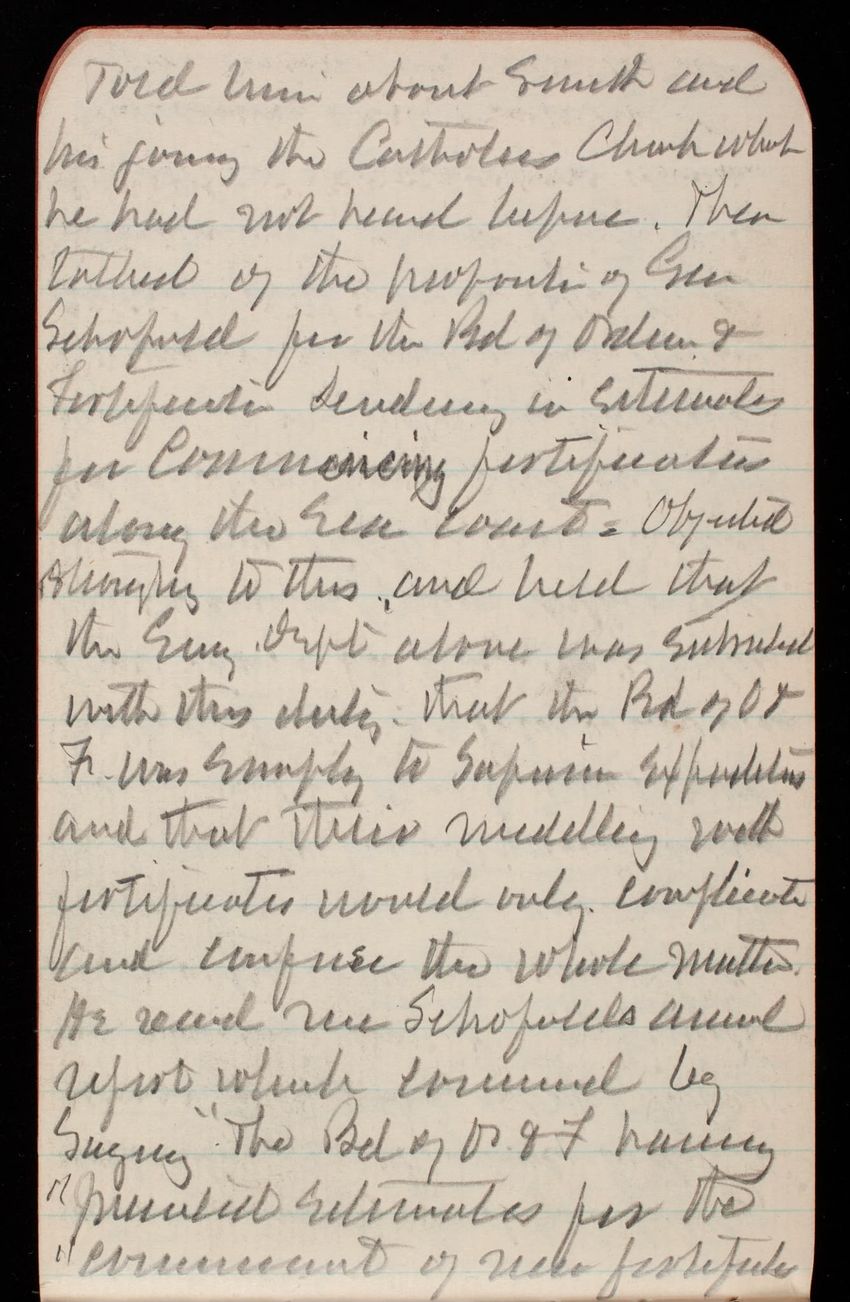 Told him about Smith and
his joining the Catholics Church which
he had not heard before. Then
talked of the proposition of Gen
Schofield for the Bd of Ordn &
Fortification sending in Estimates
for Commencing fortifications
along the Sea coast = Objected
strongly to this, and held that
the Eng. Dept alone was entrusted
with this duty. that the Bd of O &
F. was simply to supervise Expenditures
and that their meddling with
fortifications would only complicate
and confuse the whole matter.
He read me Schofields annual
report which commenced by
saying "The Bd of O. & F having
" presented Estimates for the
" commencement of new fortification